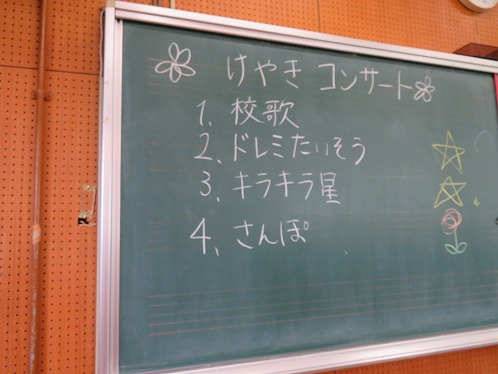 けやきコンサート
1. 校歌
2. ドレミたいそう
3. キラキラ星
4. さんぽ